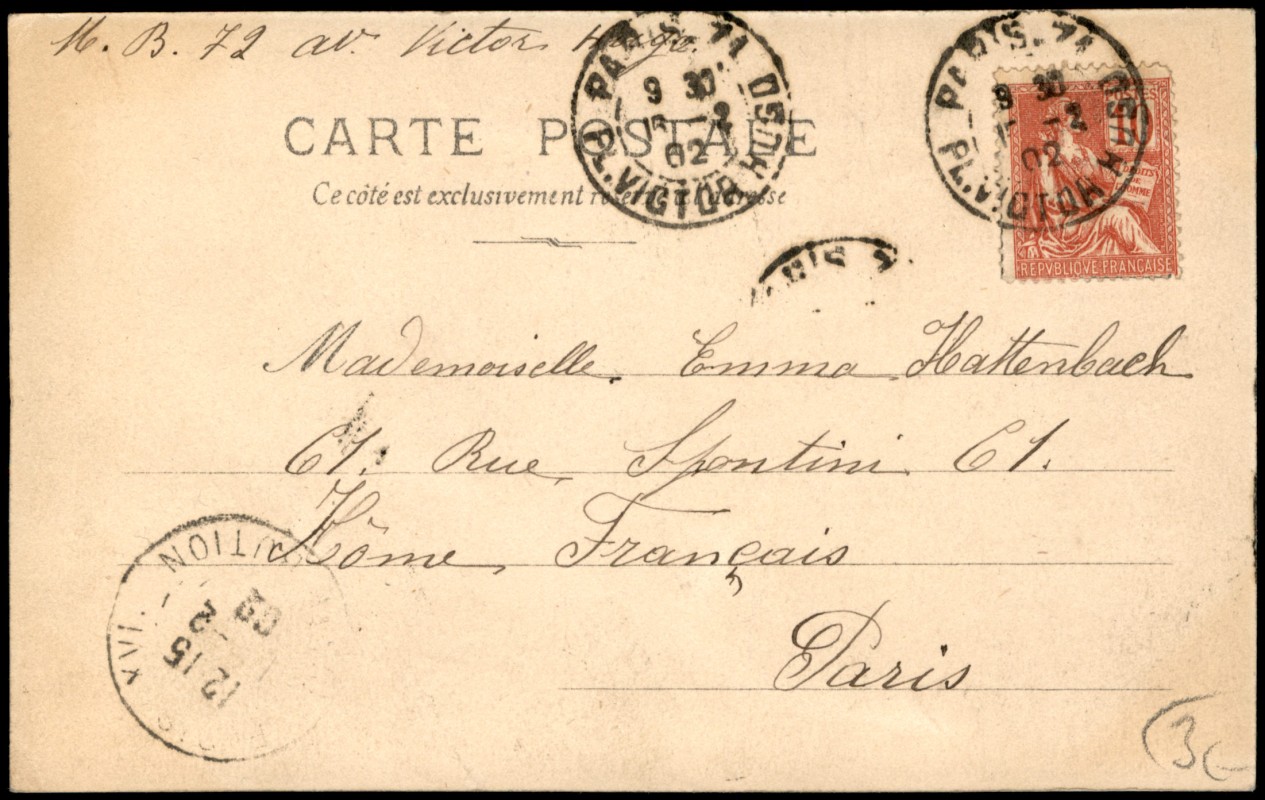 M. B. 72 av. Victor Hugo.
CARTE POSTALE
Ce côté est exclusivement réservé à l'adresse
PARIS. 71
PL. VICTOR HUGO
9 30
-2
02
PARIS. 71
PL. VICTOR HUGO
9 30
-2
02
15
REPVBLIQVE FRANÇAISE
DROITS
DE
L'HOMME
PARIS
Mademoiselle Emma Hattenbach
61. Rue Spontini 61.
Hôme Français
Paris
PARIS XVI. DISTRIBUTION
12 15
2
02
3€